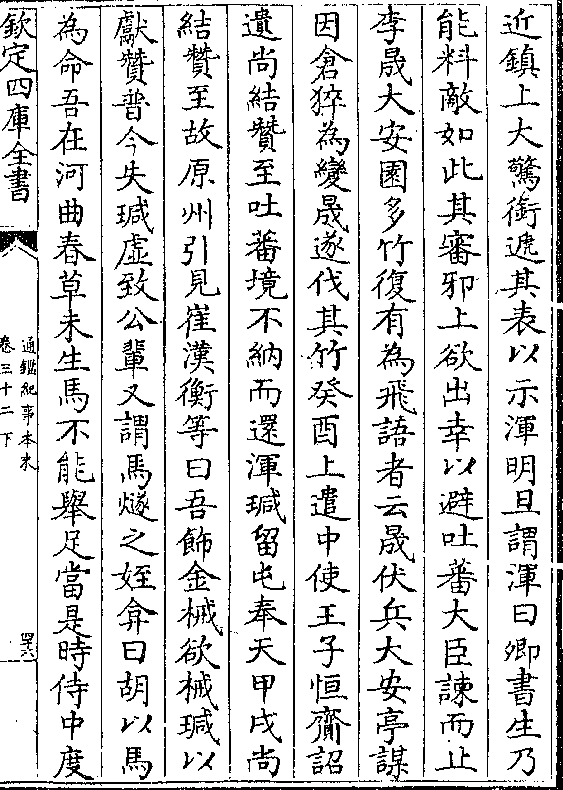 近鎮上大驚銜遞其表以示渾明旦謂渾曰卿書生乃
能料敵如此其審邪上欲出幸以避吐蕃大臣諫而止
李晟大安園多竹復有為飛語者云晟伏兵大安亭謀
因倉猝為變晟遂伐其竹癸酉上遣中使王子恒齎詔
遺尚結贊至吐蕃境不納而還渾瑊留屯奉天甲戌尚
結贊至故原州引見崔漢衡等曰吾飾金械欲械瑊以
獻贊普今失瑊虛致公輩又謂馬燧之姪弇曰胡以馬
為命吾在河曲春草未生馬不能舉足當是時侍中度
欽定四庫全書
通鑑紀事本末
卷三十二下
四六